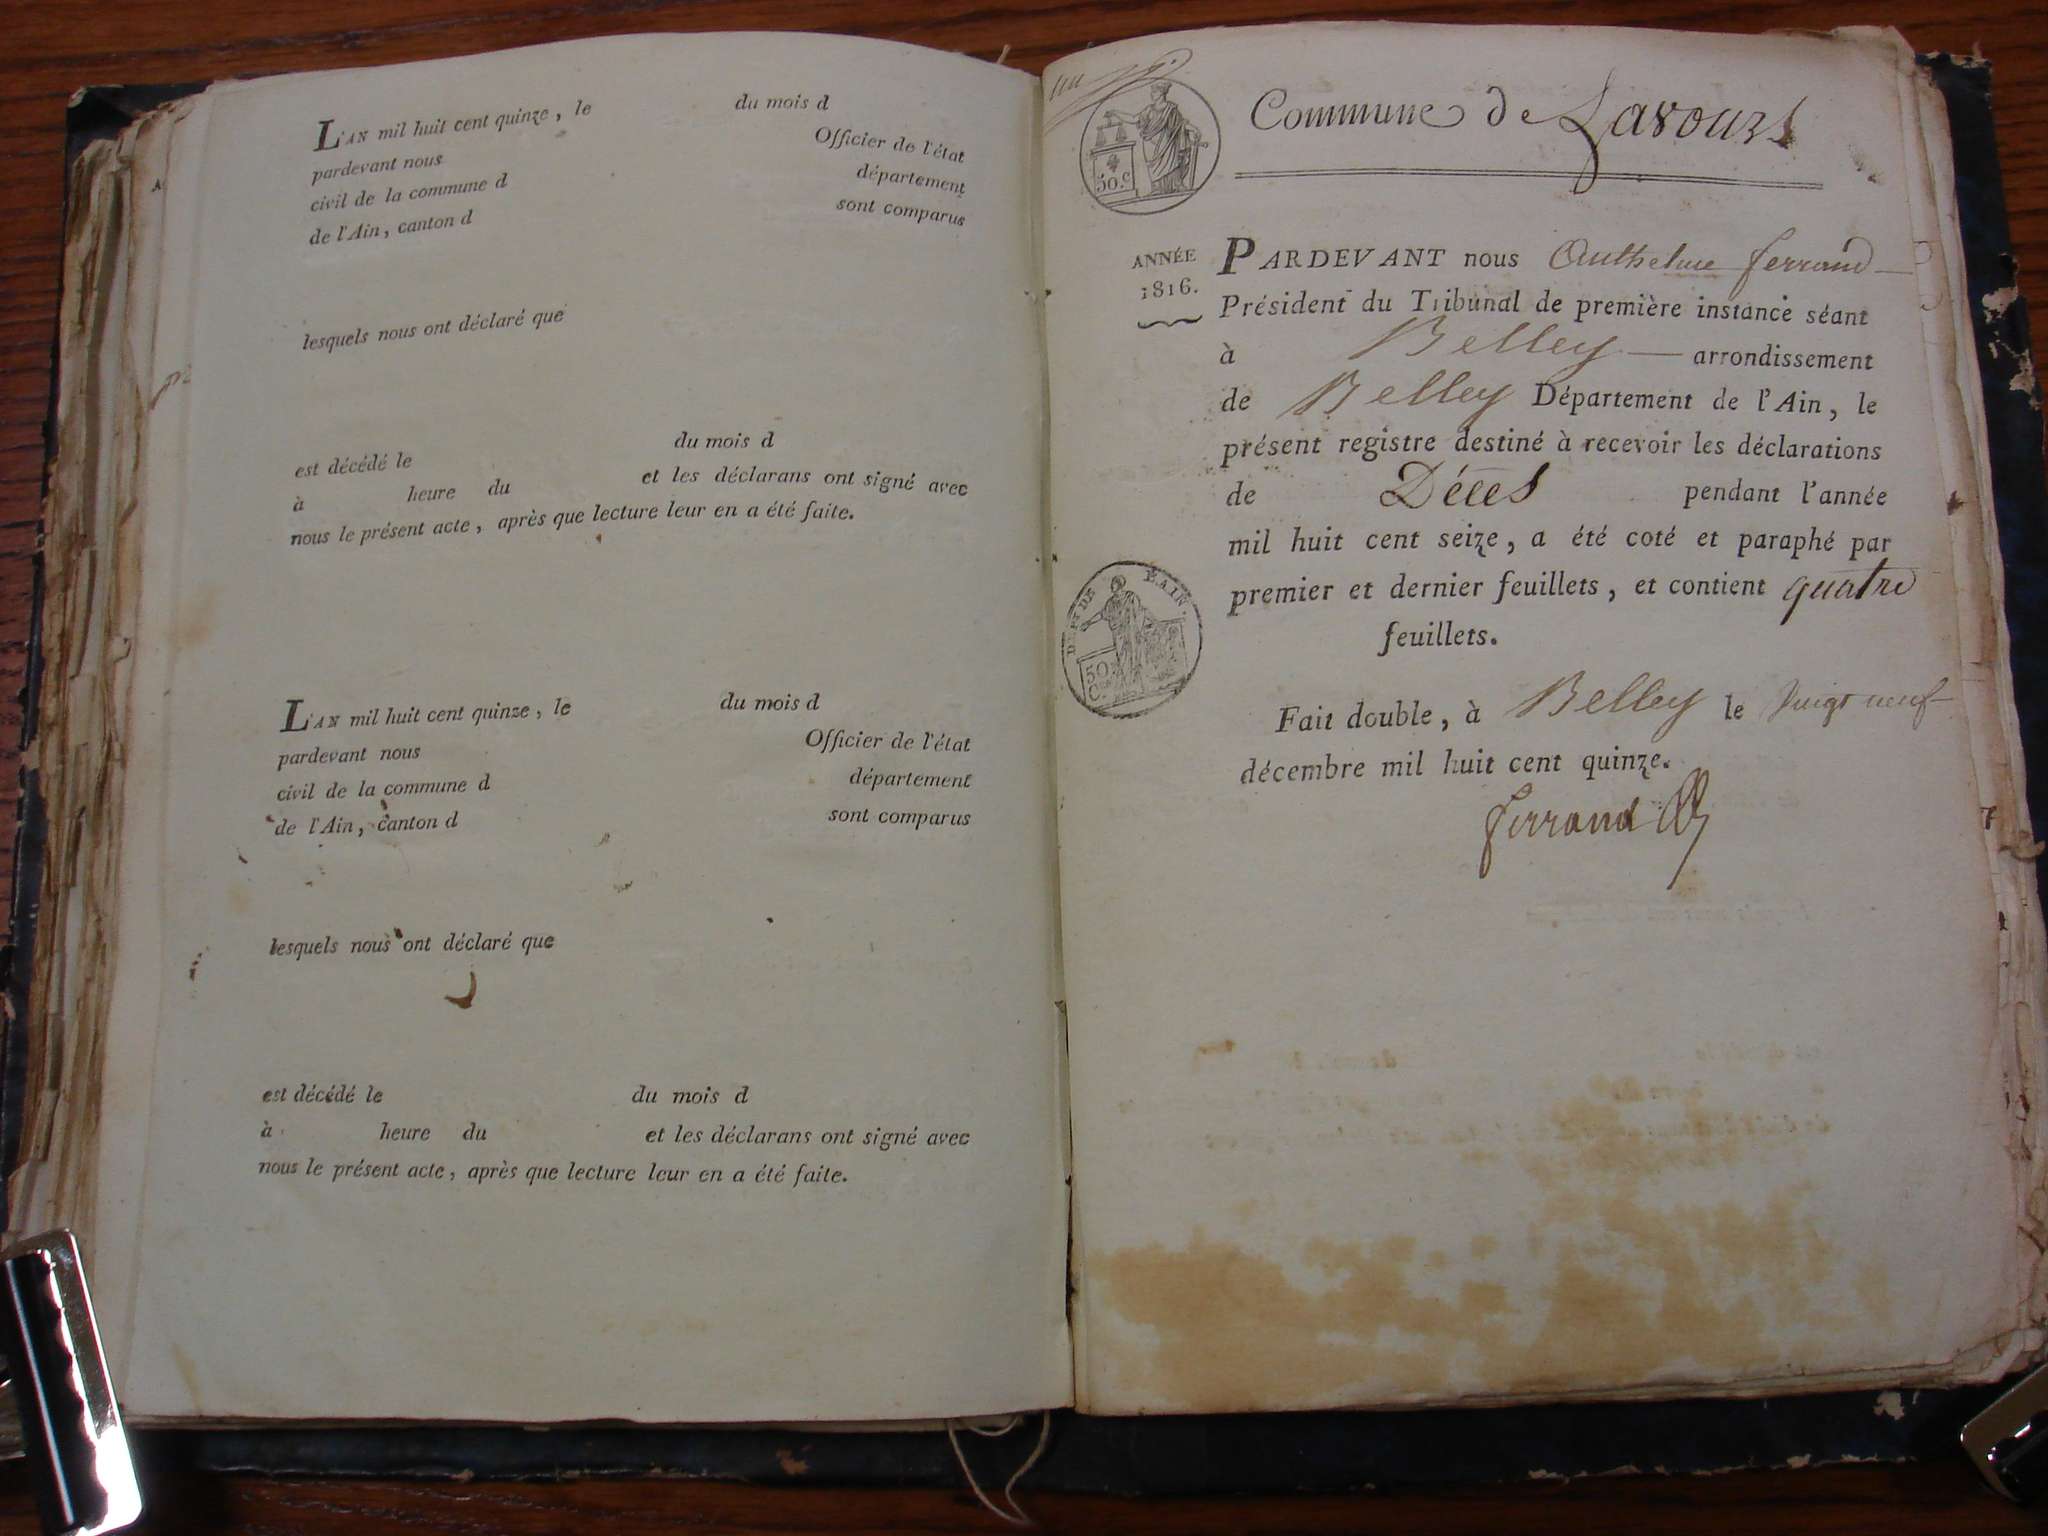 L'AN mil huit cent quinze, le du mois d
pardevant nous Officier de l'état
civil de la commune d département
de l'Ain, canton d sont comparus
lesquels nous ont déclaré que
est décédé le du mois d
à heure du et les déclarans ont signé avec
nous le présent acte, après que lecture leur en a été faite.
L'AN mil huit cent quinze, le du mois d
pardevant nous Officier de l'état
civil de la commune d département
de l'Ain, canton d sont comparus
lesquels nous ont déclaré que
est décédé le du mois d
à heure du et les déclarans ont signé avec
nous le présent acte, après que lecture leur en a été faite.
50.c
Commune de Lavours
ANNÉE
1816.
PARDEVANT nous Anthelme ferrand
Président du Tribunal de première instance séant
à Belley arrondissement
de Belley Département de l'Ain, le
présent registre destiné à recevoir les déclarations
de Décès pendant l'année
mil huit cent seize, a été coté et paraphé par
premier et dernier feuillets, et contient quatre
feuillets.
DEPT DE L'AIN.
50
Cmes
Fait double, à Belley le vingt neuf
décembre mil huit cent quinze.
ferrand